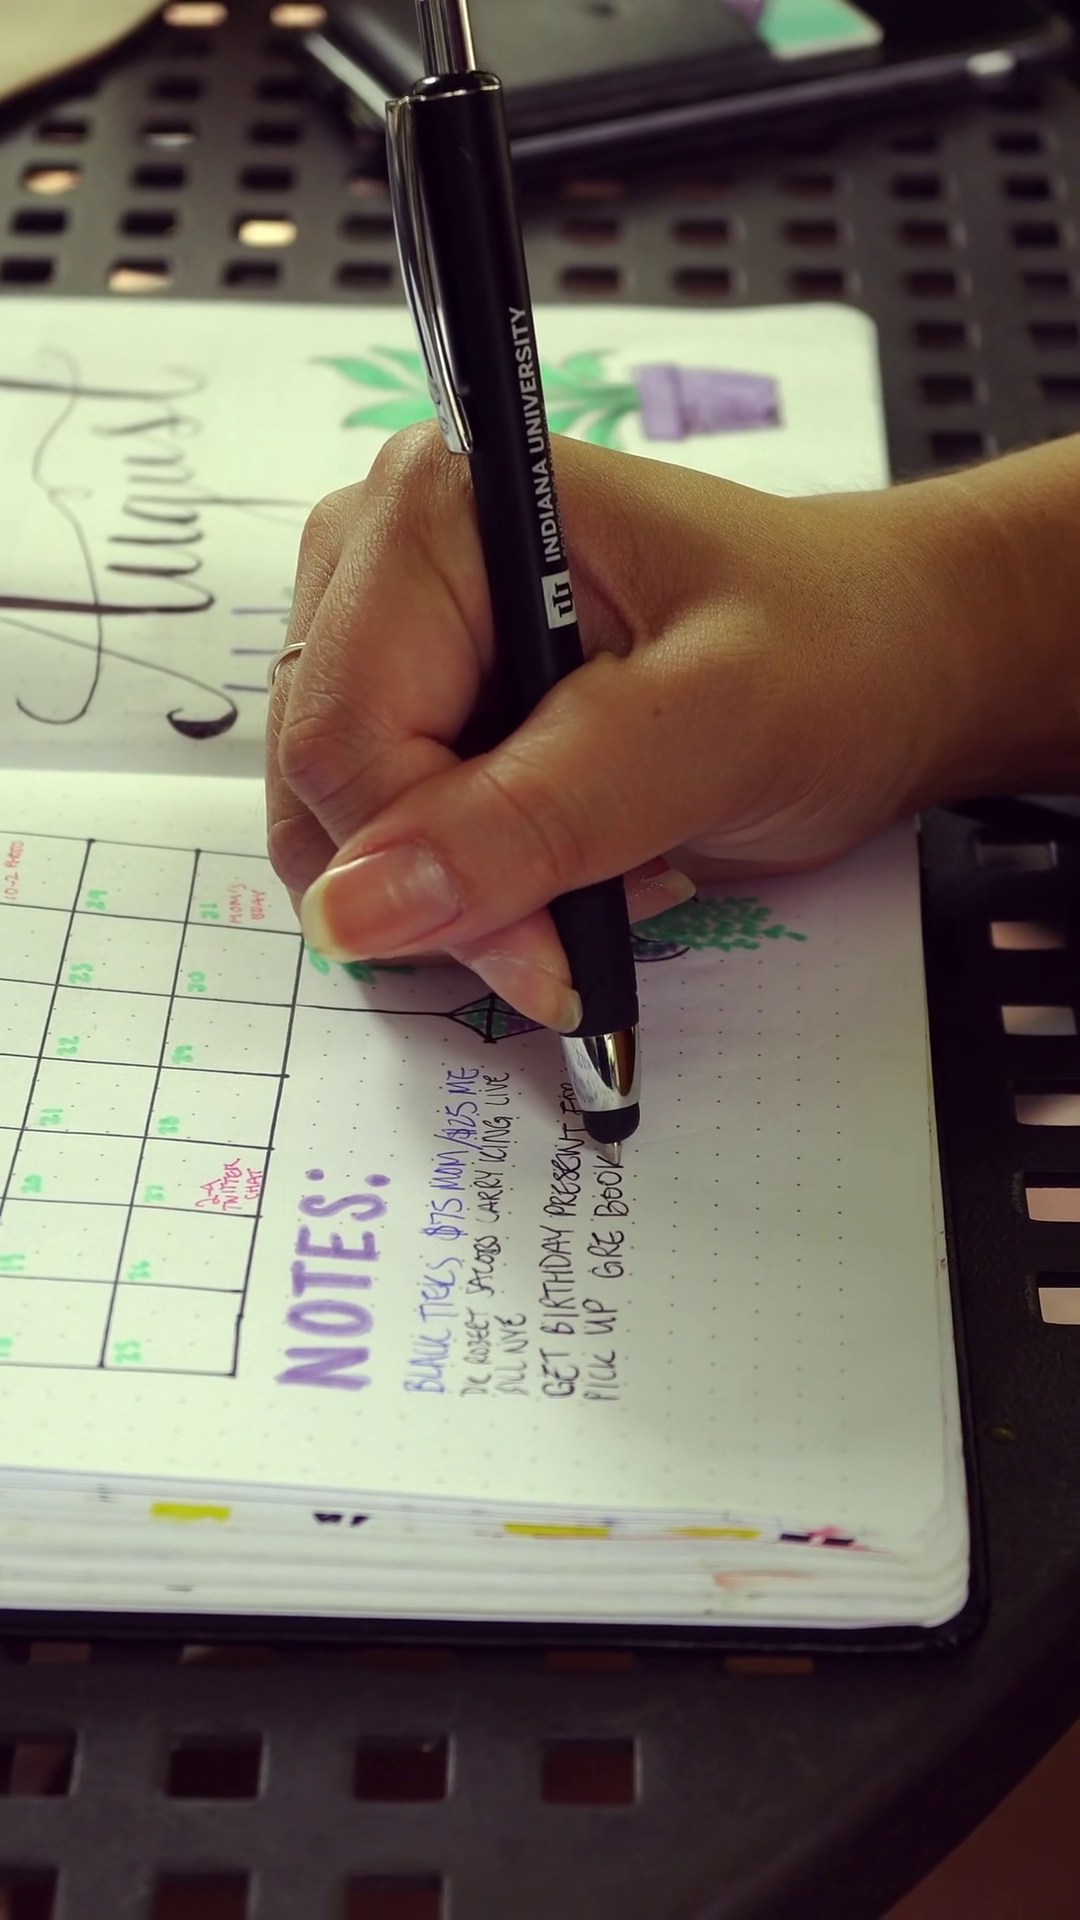 August
INDIANA UNIVERSITY
10-2 PHOTO
18
19
20
21
22
23
24
25
26
27
2-4
TWITTER
CHAT
28
29
30
31
MOM'S
BDAY
NOTES:
BLACK TICKS $75 MOM/$25 ME
DR ROBERT JACOBS CARRY KING LIVE
BILL NYE
GET BIRTHDAY PRESENT FOR
PICK UP GRE BOOK